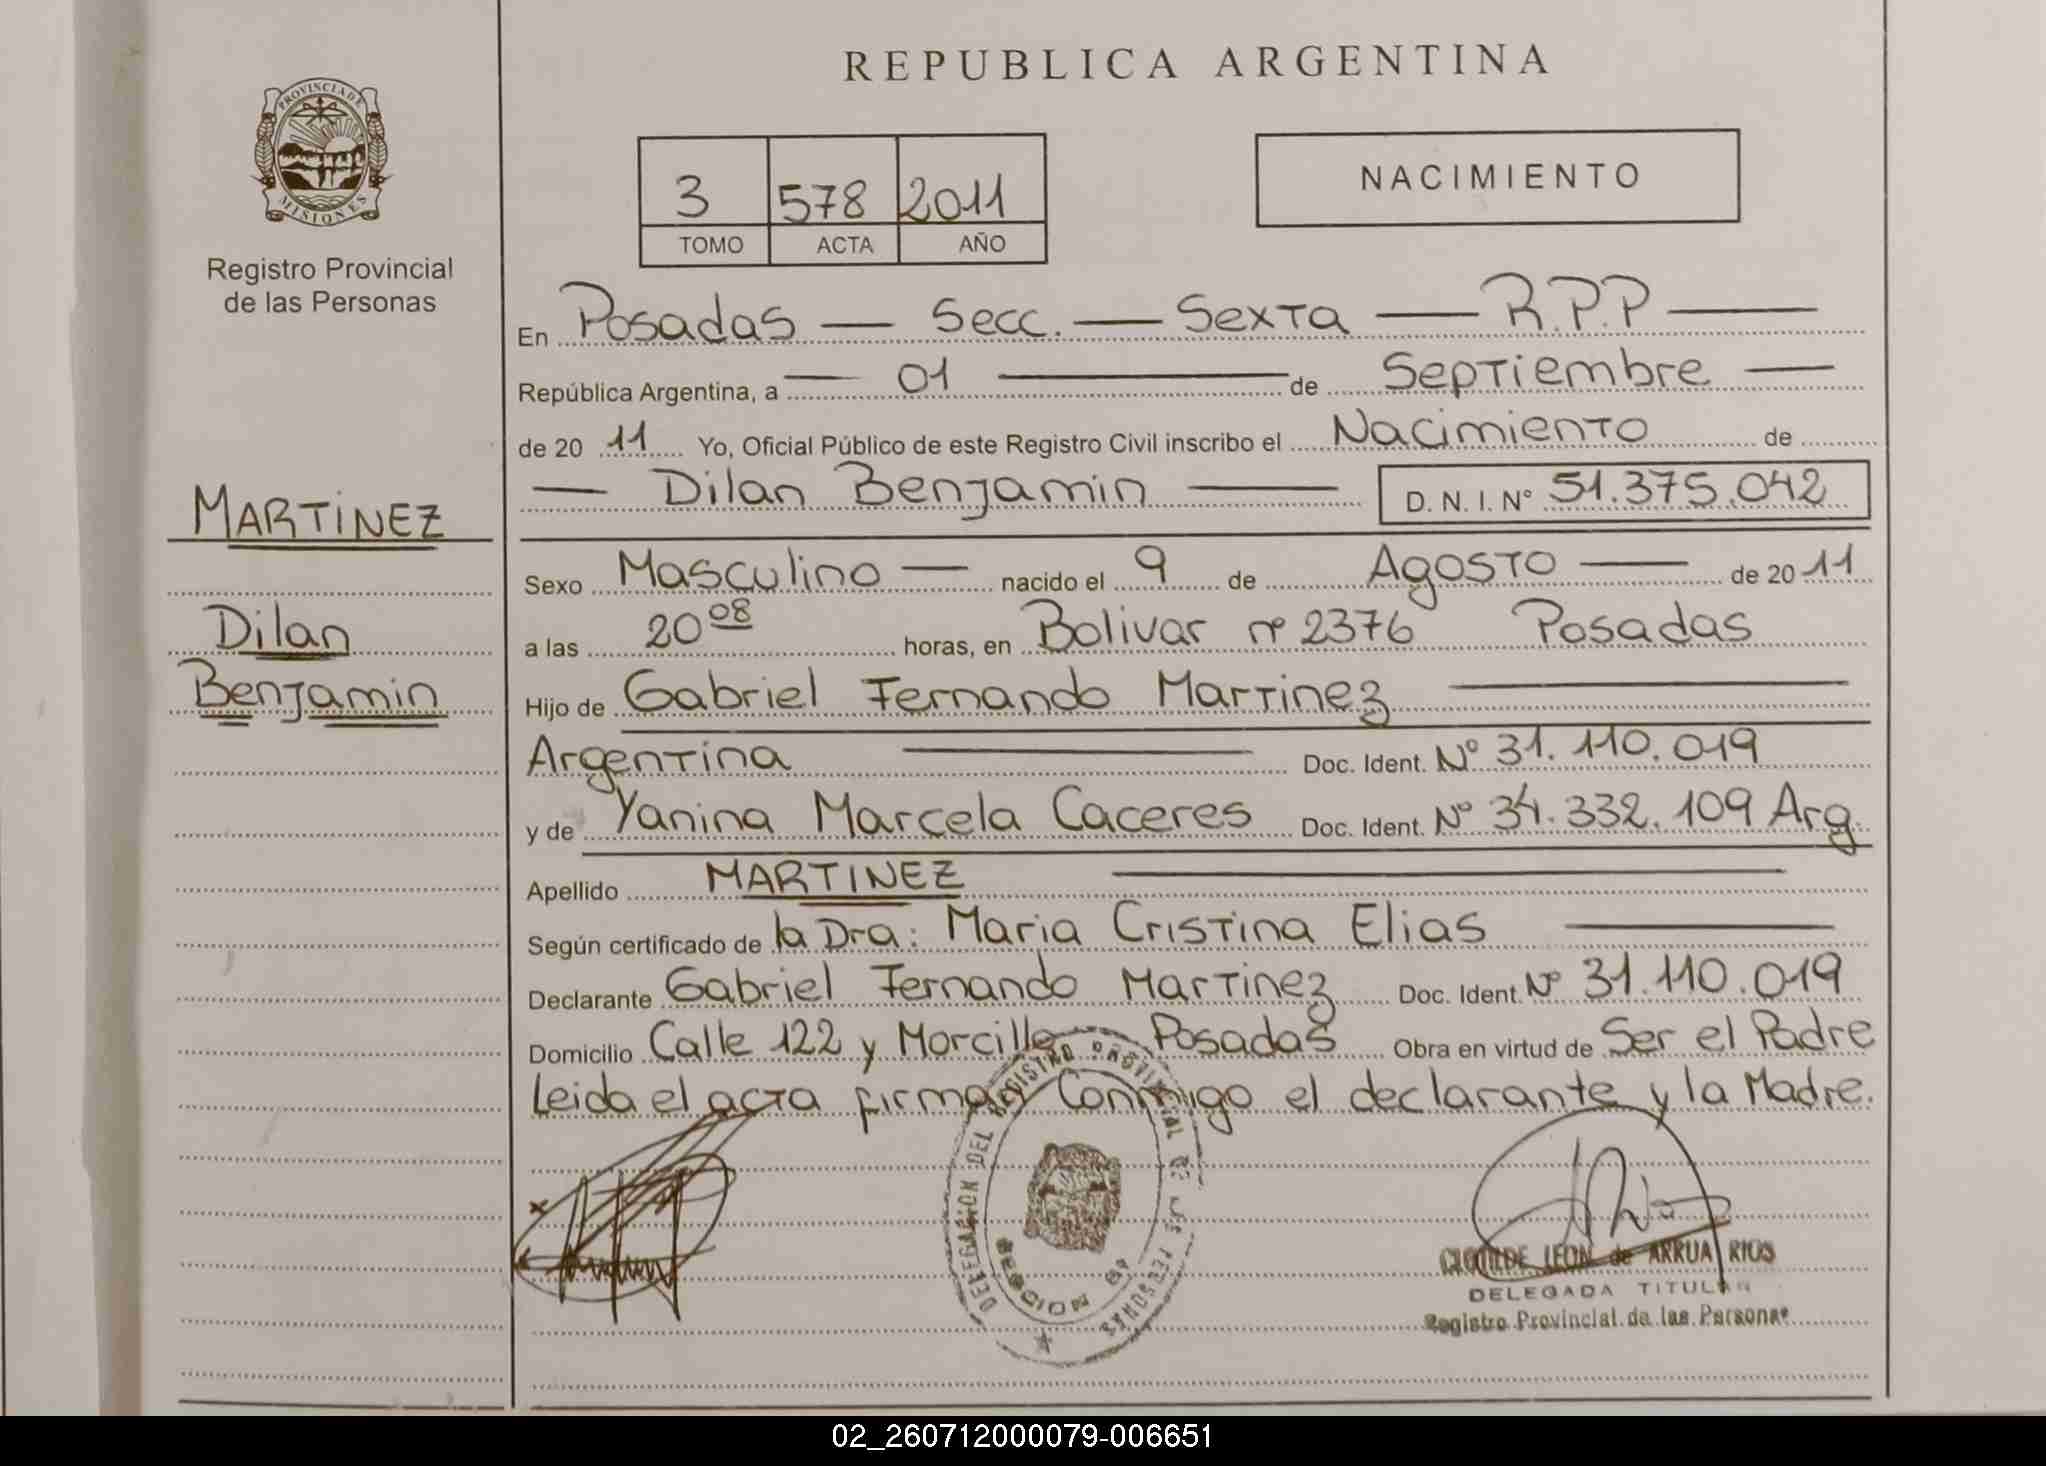 REPUBLICA ARGENTINA
PROVINCIA DE
MISIONES
Registro Provincial
de las Personas
3 578 2011
TOMO ACTA AÑO
NACIMIENTO
En Posadas — Secc. — Sexta — R.P.P —
República Argentina, a — 01 — de Septiembre —
de 20 11 Yo, Oficial Público de este Registro Civil inscribo el Nacimiento de
— Dilan Benjamin — D. N. I. N° 51.375.042
MARTINEZ
Dilan
Benjamin
Sexo Masculino — nacido el 9 de Agosto — de 20 11
a las 20 08 horas, en Bolivar nº 2376 Posadas
Hijo de Gabriel Fernando Martinez —
Argentina — Doc. Ident. Nº 31.110.019
y de Yanina Marcela Caceres Doc. Ident. Nº 34.332.109 Arg.
Apellido MARTINEZ —
Según certificado de la Dra: Maria Cristina Elias —
Declarante Gabriel Fernando Martinez Doc. Ident. Nº 31.110.019
Domicilio Calle 122 y Morcillo Posadas Obra en virtud de Ser el Padre
Leida el acta firman Conmigo el declarante y la Madre.
DELEGACION DEL REGISTRO PROVINCIAL DE LAS PERSONAS
SECCION 6ª
CLOTILDE LEON de ARRUA RIOS
DELEGADA TITULAR
Registro Provincial de las Personas
02_260712000079-006651